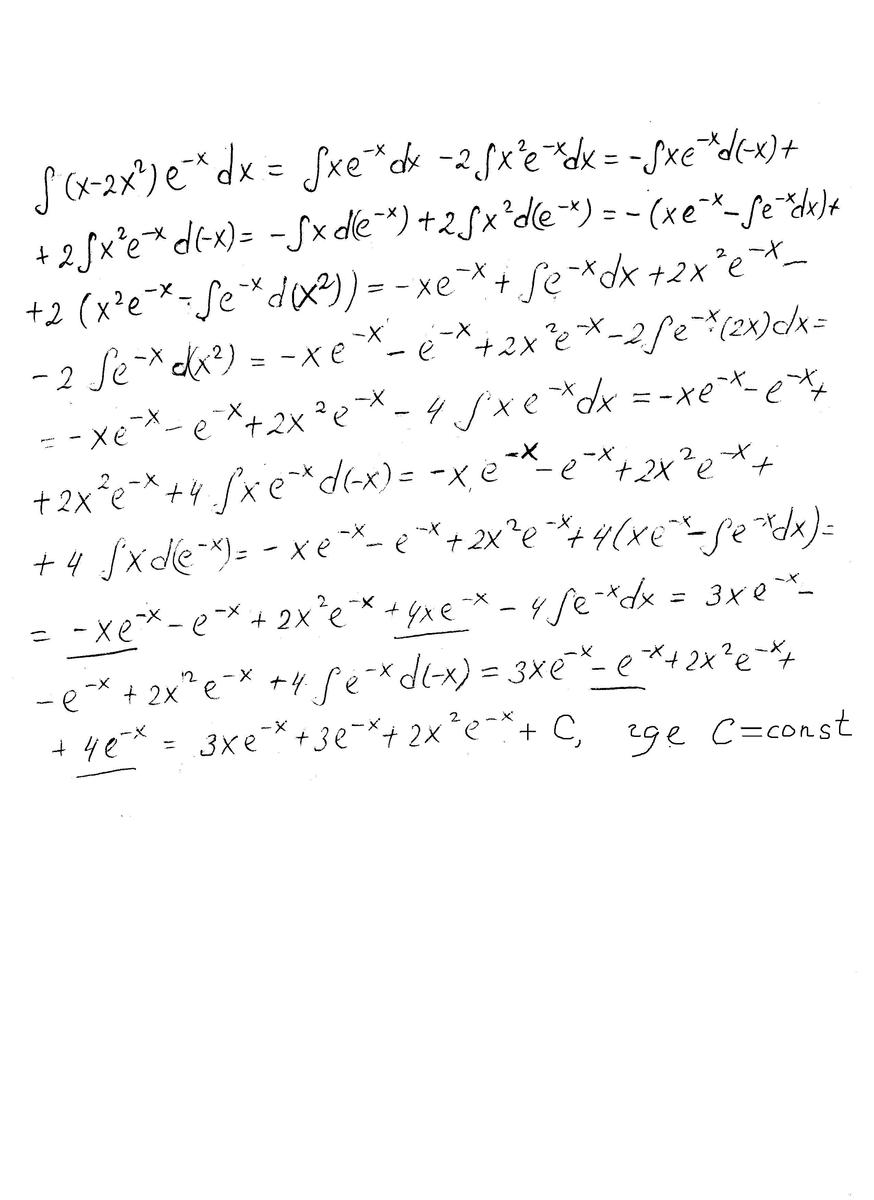 ∫(x-2x²)e⁻ˣdx = ∫xe⁻ˣdx -2∫x²e⁻ˣdx = -∫xe⁻ˣd(-x)+
+2∫x²e⁻ˣd(-x)= -∫xd(e⁻ˣ)+2∫x²d(e⁻ˣ) = -(xe⁻ˣ-∫e⁻ˣdx)+
+2(x²e⁻ˣ-∫e⁻ˣd(x²)) = -xe⁻ˣ+∫e⁻ˣdx+2x²e⁻ˣ-
-2∫e⁻ˣd(x²) = -xe⁻ˣ-e⁻ˣ+2x²e⁻ˣ-2∫e⁻ˣ(2x)dx=
= -xe⁻ˣ-e⁻ˣ+2x²e⁻ˣ-4∫xe⁻ˣdx = -xe⁻ˣ-e⁻ˣ+
+2x²e⁻ˣ+4∫xe⁻ˣd(-x)= -xe⁻ˣ-e⁻ˣ+2x²e⁻ˣ+
+4∫xd(e⁻ˣ)= -xe⁻ˣ-e⁻ˣ+2x²e⁻ˣ+4(xe⁻ˣ-∫e⁻ˣdx)=
= -xe⁻ˣ-e⁻ˣ+2x²e⁻ˣ+4xe⁻ˣ-4∫e⁻ˣdx = 3xe⁻ˣ-
-e⁻ˣ+2x²e⁻ˣ+4∫e⁻ˣd(-x) = 3xe⁻ˣ-e⁻ˣ+2x²e⁻ˣ+
+4e⁻ˣ = 3xe⁻ˣ+3e⁻ˣ+2x²e⁻ˣ+C, где C=const